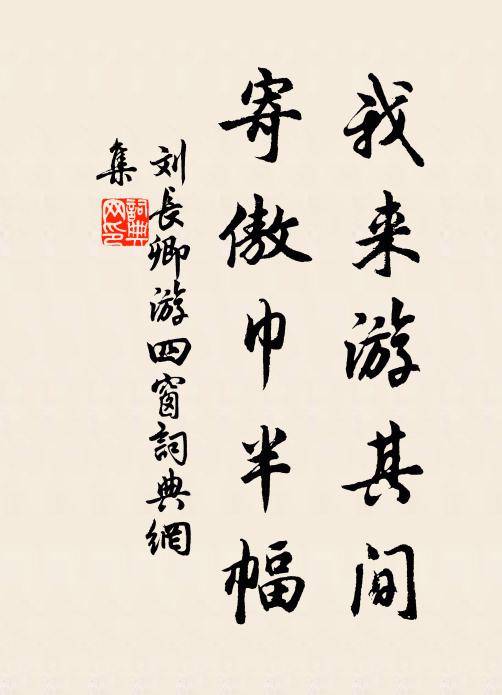 我来游其间
寄傲巾半幅
刘长卿游四窗詞典網
集
詞典網印